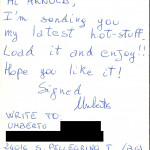 Hi ARNOLD,
I'm sending you
my latest hot-stuff.
Load it and enjoy!!
Hope you like it!
Signed
Umberto
WRITE TO
UMBERTO
24016 S. PELLEGRINO T. (BG)